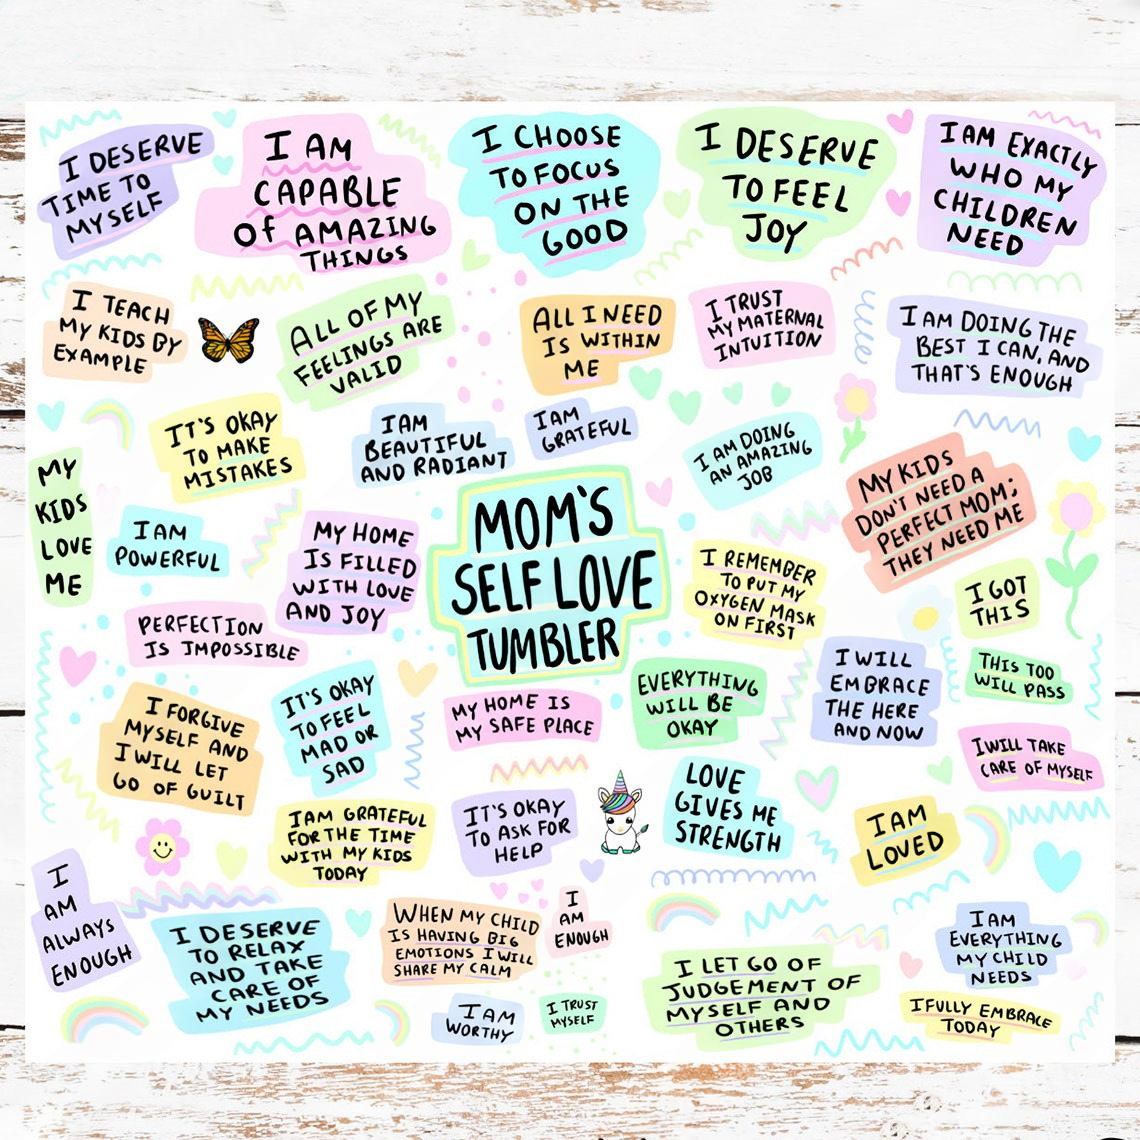 I DESERVE
TIME TO
MYSELF
I AM
CAPABLE
Of AMAZING
THINGS
I CHOOSE
TO FOCUS
ON THE
GOOD
I DESERVE
TO FEEL
JOY
I AM EXACTLY
WHO MY
CHILDREN
NEED
I TEACH
MY KIDS BY
EXAMPLE
ALL OF MY
FEELINGS ARE
VALID
ALL I NEED
IS WITHIN
ME
I TRUST
MY MATERNAL
INTUITION
I AM DOING THE
BEST I CAN, AND
THAT'S ENOUGH
IT'S OKAY
TO MAKE
MISTAKES
I AM
BEAUTIFUL
AND RADIANT
I AM
GRATEFUL
I AM DOING
AN AMAZING
JOB
MY KIDS
DON'T NEED A
PERFECT MOM;
THEY NEED ME
MY
KIDS
LOVE
ME
I AM
POWERFUL
MY HOME
IS FILLED
WITH LOVE
AND JOY
MOM'S
SELF LOVE
TUMBLER
I REMEMBER
TO PUT MY
OXYGEN MASK
ON FIRST
I GOT
THIS
PERFECTION
IS IMPOSSIBLE
I FORGIVE
MYSELF AND
I WILL LET
GO OF GUILT
IT'S OKAY
TO FEEL
MAD OR
SAD
MY HOME IS
MY SAFE PLACE
EVERYTHING
WILL BE
OKAY
I WILL
EMBRACE
THE HERE
AND NOW
THIS TOO
WILL PASS
I WILL TAKE
CARE OF MYSELF
I AM GRATEFUL
FOR THE TIME
WITH MY KIDS
TODAY
IT'S OKAY
TO ASK FOR
HELP
LOVE
GIVES ME
STRENGTH
I AM
LOVED
I
AM
ALWAYS
ENOUGH
I DESERVE
TO RELAX
AND TAKE
CARE OF
MY NEEDS
WHEN MY CHILD
IS HAVING BIG
EMOTIONS I WILL
SHARE MY CALM
I
AM
ENOUGH
I AM
WORTHY
I TRUST
MYSELF
I LET GO OF
JUDGEMENT OF
MYSELF AND
OTHERS
I AM
EVERYTHING
MY CHILD
NEEDS
I FULLY EMBRACE
TODAY